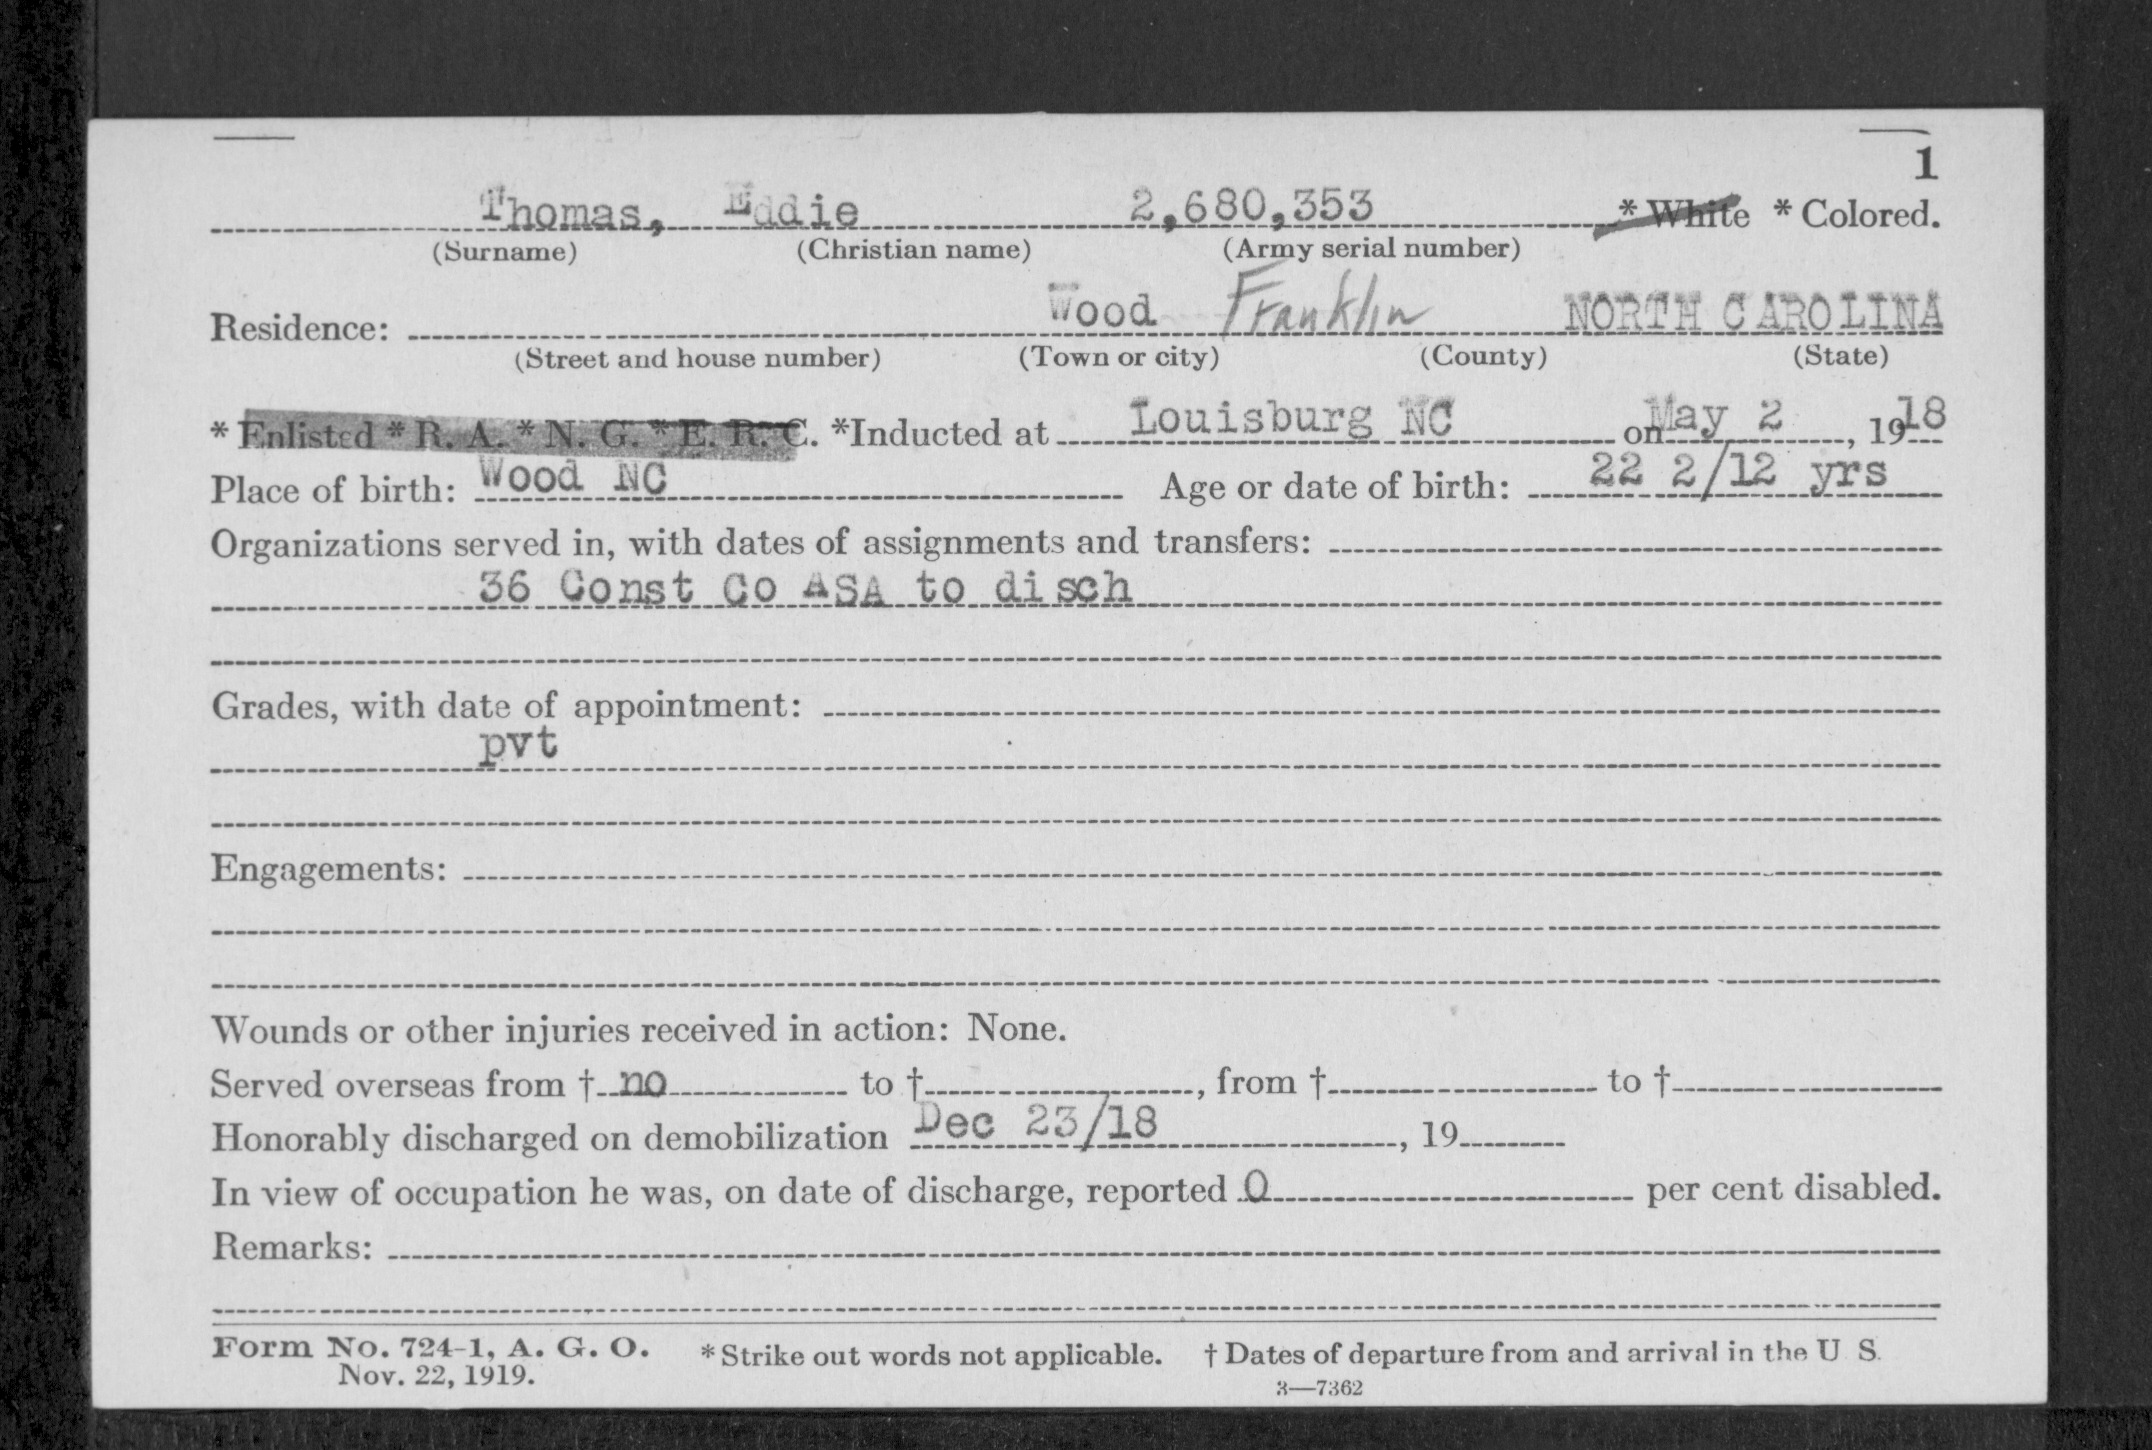 1
Thomas, Eddie 2,680,353 * White * Colored.
(Surname) (Christian name) (Army serial number)
Residence: Wood Franklin NORTH CAROLINA
(Street and house number) (Town or city) (County) (State)
* Enlisted * R. A. * N. G. * E. R. C. *Inducted at Louisburg NC on May 2, 1918
Place of birth: Wood NC Age or date of birth: 22 2/12 yrs
Organizations served in, with dates of assignments and transfers:
36 Const Co ASA to disch
Grades, with date of appointment:
pvt
Engagements:
Wounds or other injuries received in action: None.
Served overseas from † no to †, from † to †
Honorably discharged on demobilization Dec 23/18, 19
In view of occupation he was, on date of discharge, reported 0 per cent disabled.
Remarks:
Form No. 724-1, A. G. O. * Strike out words not applicable. † Dates of departure from and arrival in the U S.
Nov. 22, 1919.
3—7362